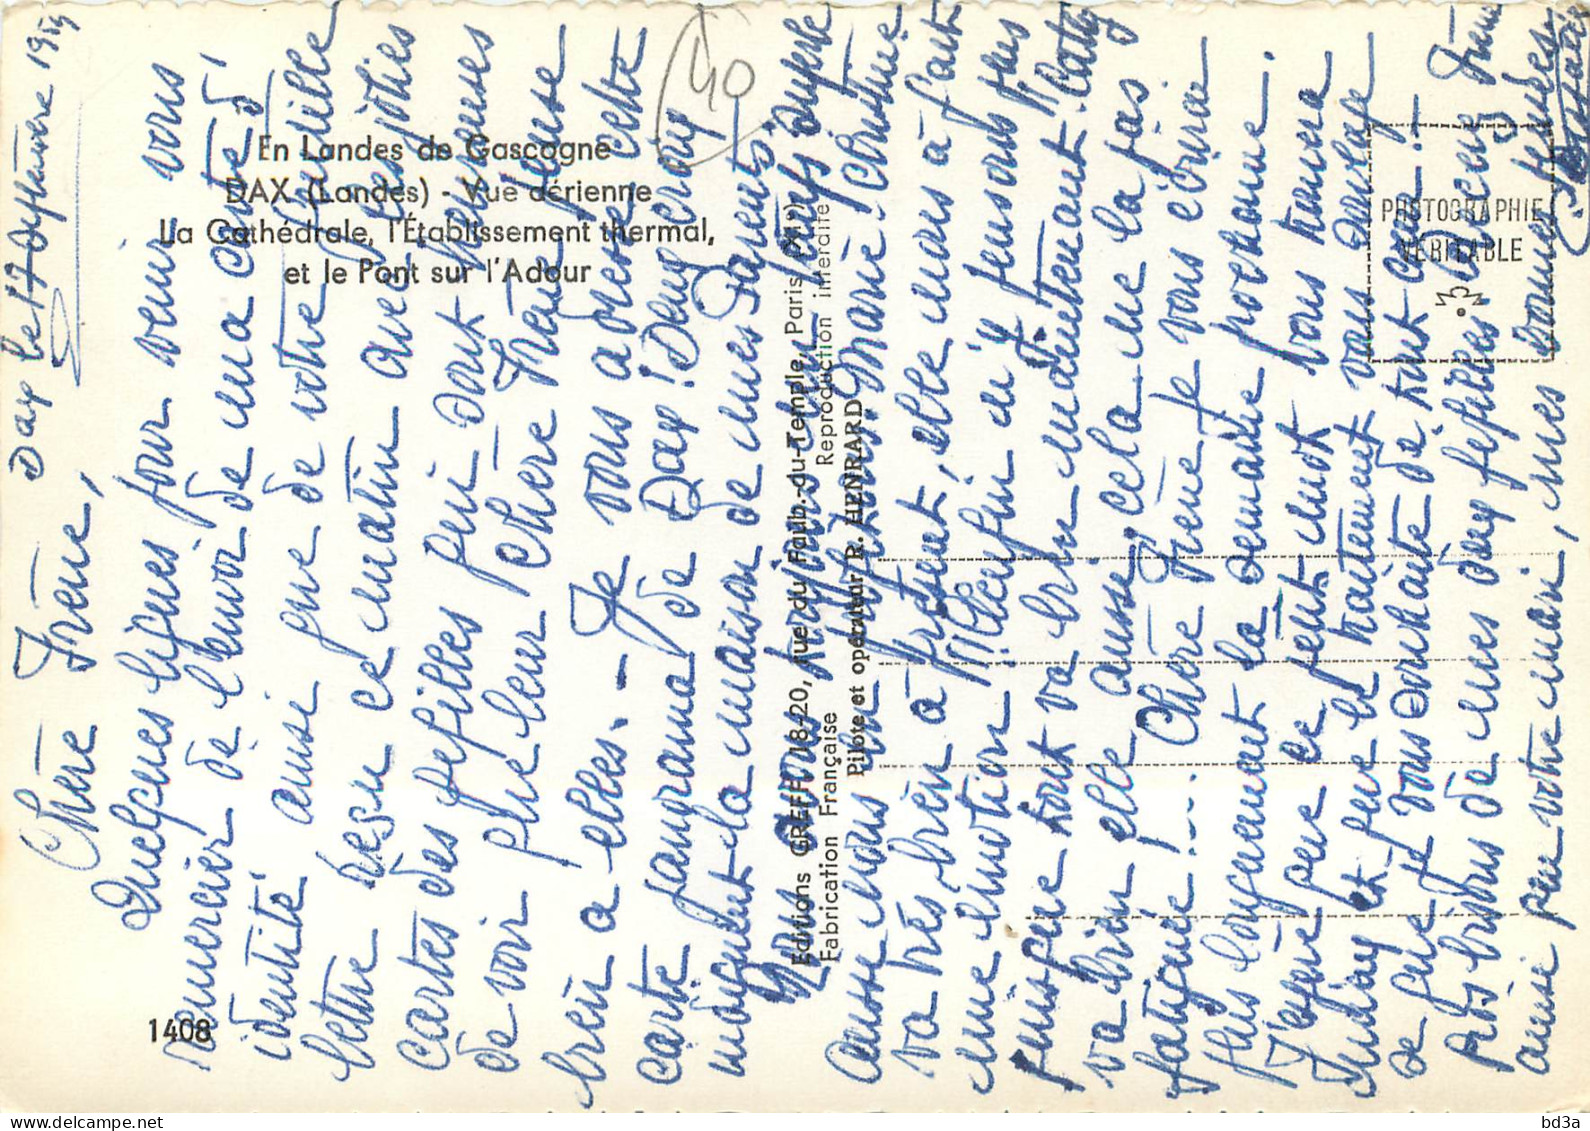 En Landes de Gascogne
DAX (Landes) - Vue aérienne
La Cathédrale, l'Établissement thermal,
et le Pont sur l'Adour
1408
40
PHOTOGRAPHIE
VÉRITABLE
Editions GREFF, 18-20, rue du Faub.-du-Temple, Paris (XIe)
Fabrication Française Reproduction interdite
Pilote et opérateur R. HENRARD
Dax le 17 Septembre 19
Chère Irène,
Quelques lignes pour venir vous
remercier de l'envoi de ma carte d'
identité ainsi que de votre gentille
lettre reçu ce matin avec les jolies
cartes des petites qui sont heureuses
de voir que leur chère Irène pense
bien à elles. - Je vous adresse cette
carte panorama de Dax! Deux croix
marquent la maison de mes Parents
aussi nous Marie! Christine
va très bien à présent, elle nous a fait
une émotion! Enfin n'y pensons plus
puisque tout va bien maintenant. Caty
va bien elle aussi, cela ne la pas
fatiguée!... Chère Irène je vous écrirai
plus longuement la semaine prochaine.
J'espère que ce petit mot vous trouvera
et que le traitement vous soulage
ce que je vous souhaite de tout cœur!
Gros baisers de mes deux petites à Irène
ainsi que votre mari, mes bonnes